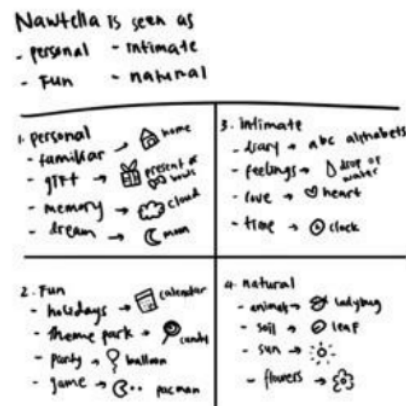 Nawtella is seen as
- personal - intimate
- Fun - natural
1. personal
- familiar → home
- gift → present or bows
- memory → cloud
- dream → moon
2. Fun
- holidays → calendar
- theme park → candy
- party → balloon
- game → pacman
3. intimate
- diary → abc alphabets
- feelings → drop of water
- love → heart
- time → clock
4. natural
- animal → ladybug
- soil → leaf
- sun →
- flowers →